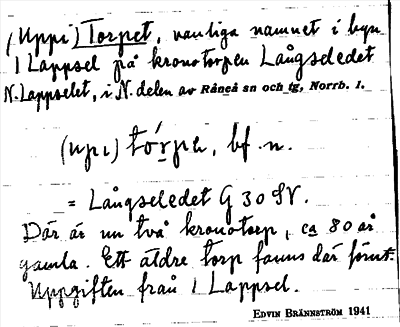 (Uppi) Torpet, vanliga namnet i byn
1 Lappsel på kronotorpen Långseledet
N. Lappselet, i N. delen av Råneå sn och tg, Norrb. l.
(upı) tórpə, bf. n.
= Långseledet G 30 SV.
Där är nu två kronotorp, ca 80 år
gamla. Ett äldre torp fanns där förut.
Uppgiften från 1 Lappsel.
EDVIN BRÄNNSTRÖM 1941